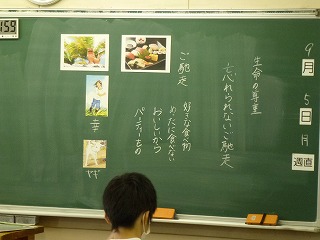 9月5日月
週直
生命の尊重
忘れられないご馳走
ご馳走
好きな食べ物
めったに食べない
おいしいかつ
パーティーもの
幸
ヤギ
159